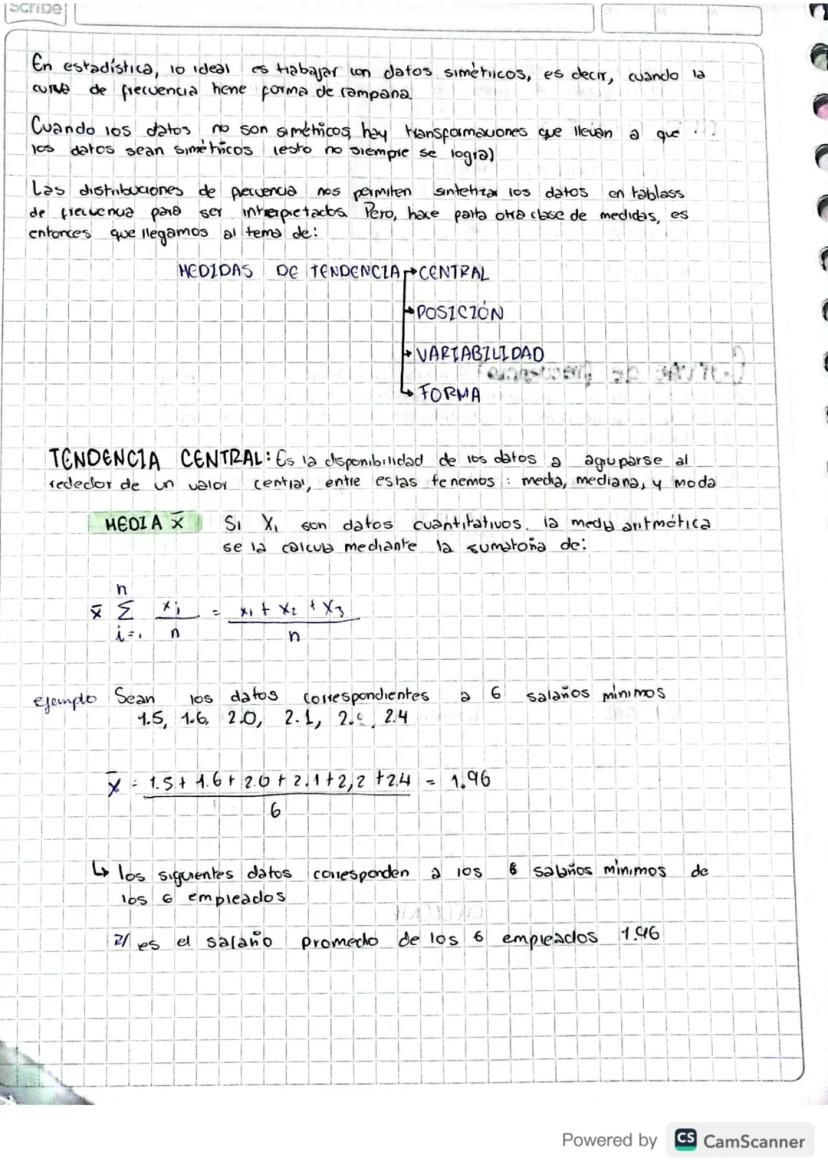 scribe
En estadística, lo ideal es trabajar con datos simétricos, es decir, cuando la
curva de frecuencia tiene forma de campana.
Cuando los datos no son simétricos, hay transformaciones que llevan a que
los datos sean simétricos (esto no siempre se logra)
Las distribuciones de frecuencia nos permiten sintetizar los datos en tablass
de frecuencia para ser interpretados. Pero, hace falta otra clase de medidas, es
entonces que llegamos al tema de:
MEDIDAS DE TENDENCIA → CENTRAL
→ POSICIÓN
→ VARIABILIDAD
→ FORMA
TENDENCIA CENTRAL: Es la disponibilidad de los datos a agruparse al
rededor de un valor central, entre estas tenemos: media, mediana, y moda
MEDIA x̄ Si X₁ son datos cuantitativos, la media aritmética
se la calcula mediante la sumatoria de:
n
x̄ Σ xi / n = x₁ + x₂ + x₃ / n
i=1
ejemplo Sean los datos correspondientes a 6 salarios mínimos
1.5, 1.6, 2.0, 2.1, 2.4
x̄ = 1.5 + 1.6 + 2.0 + 2.1 + 2,2 + 2.4 = 1.96
6
↳ los siguientes datos corresponden a los 6 salarios mínimos de
los 6 empleados
2/ es el salario promedio de los 6 empleados 1.96
Powered by CS CamScanner